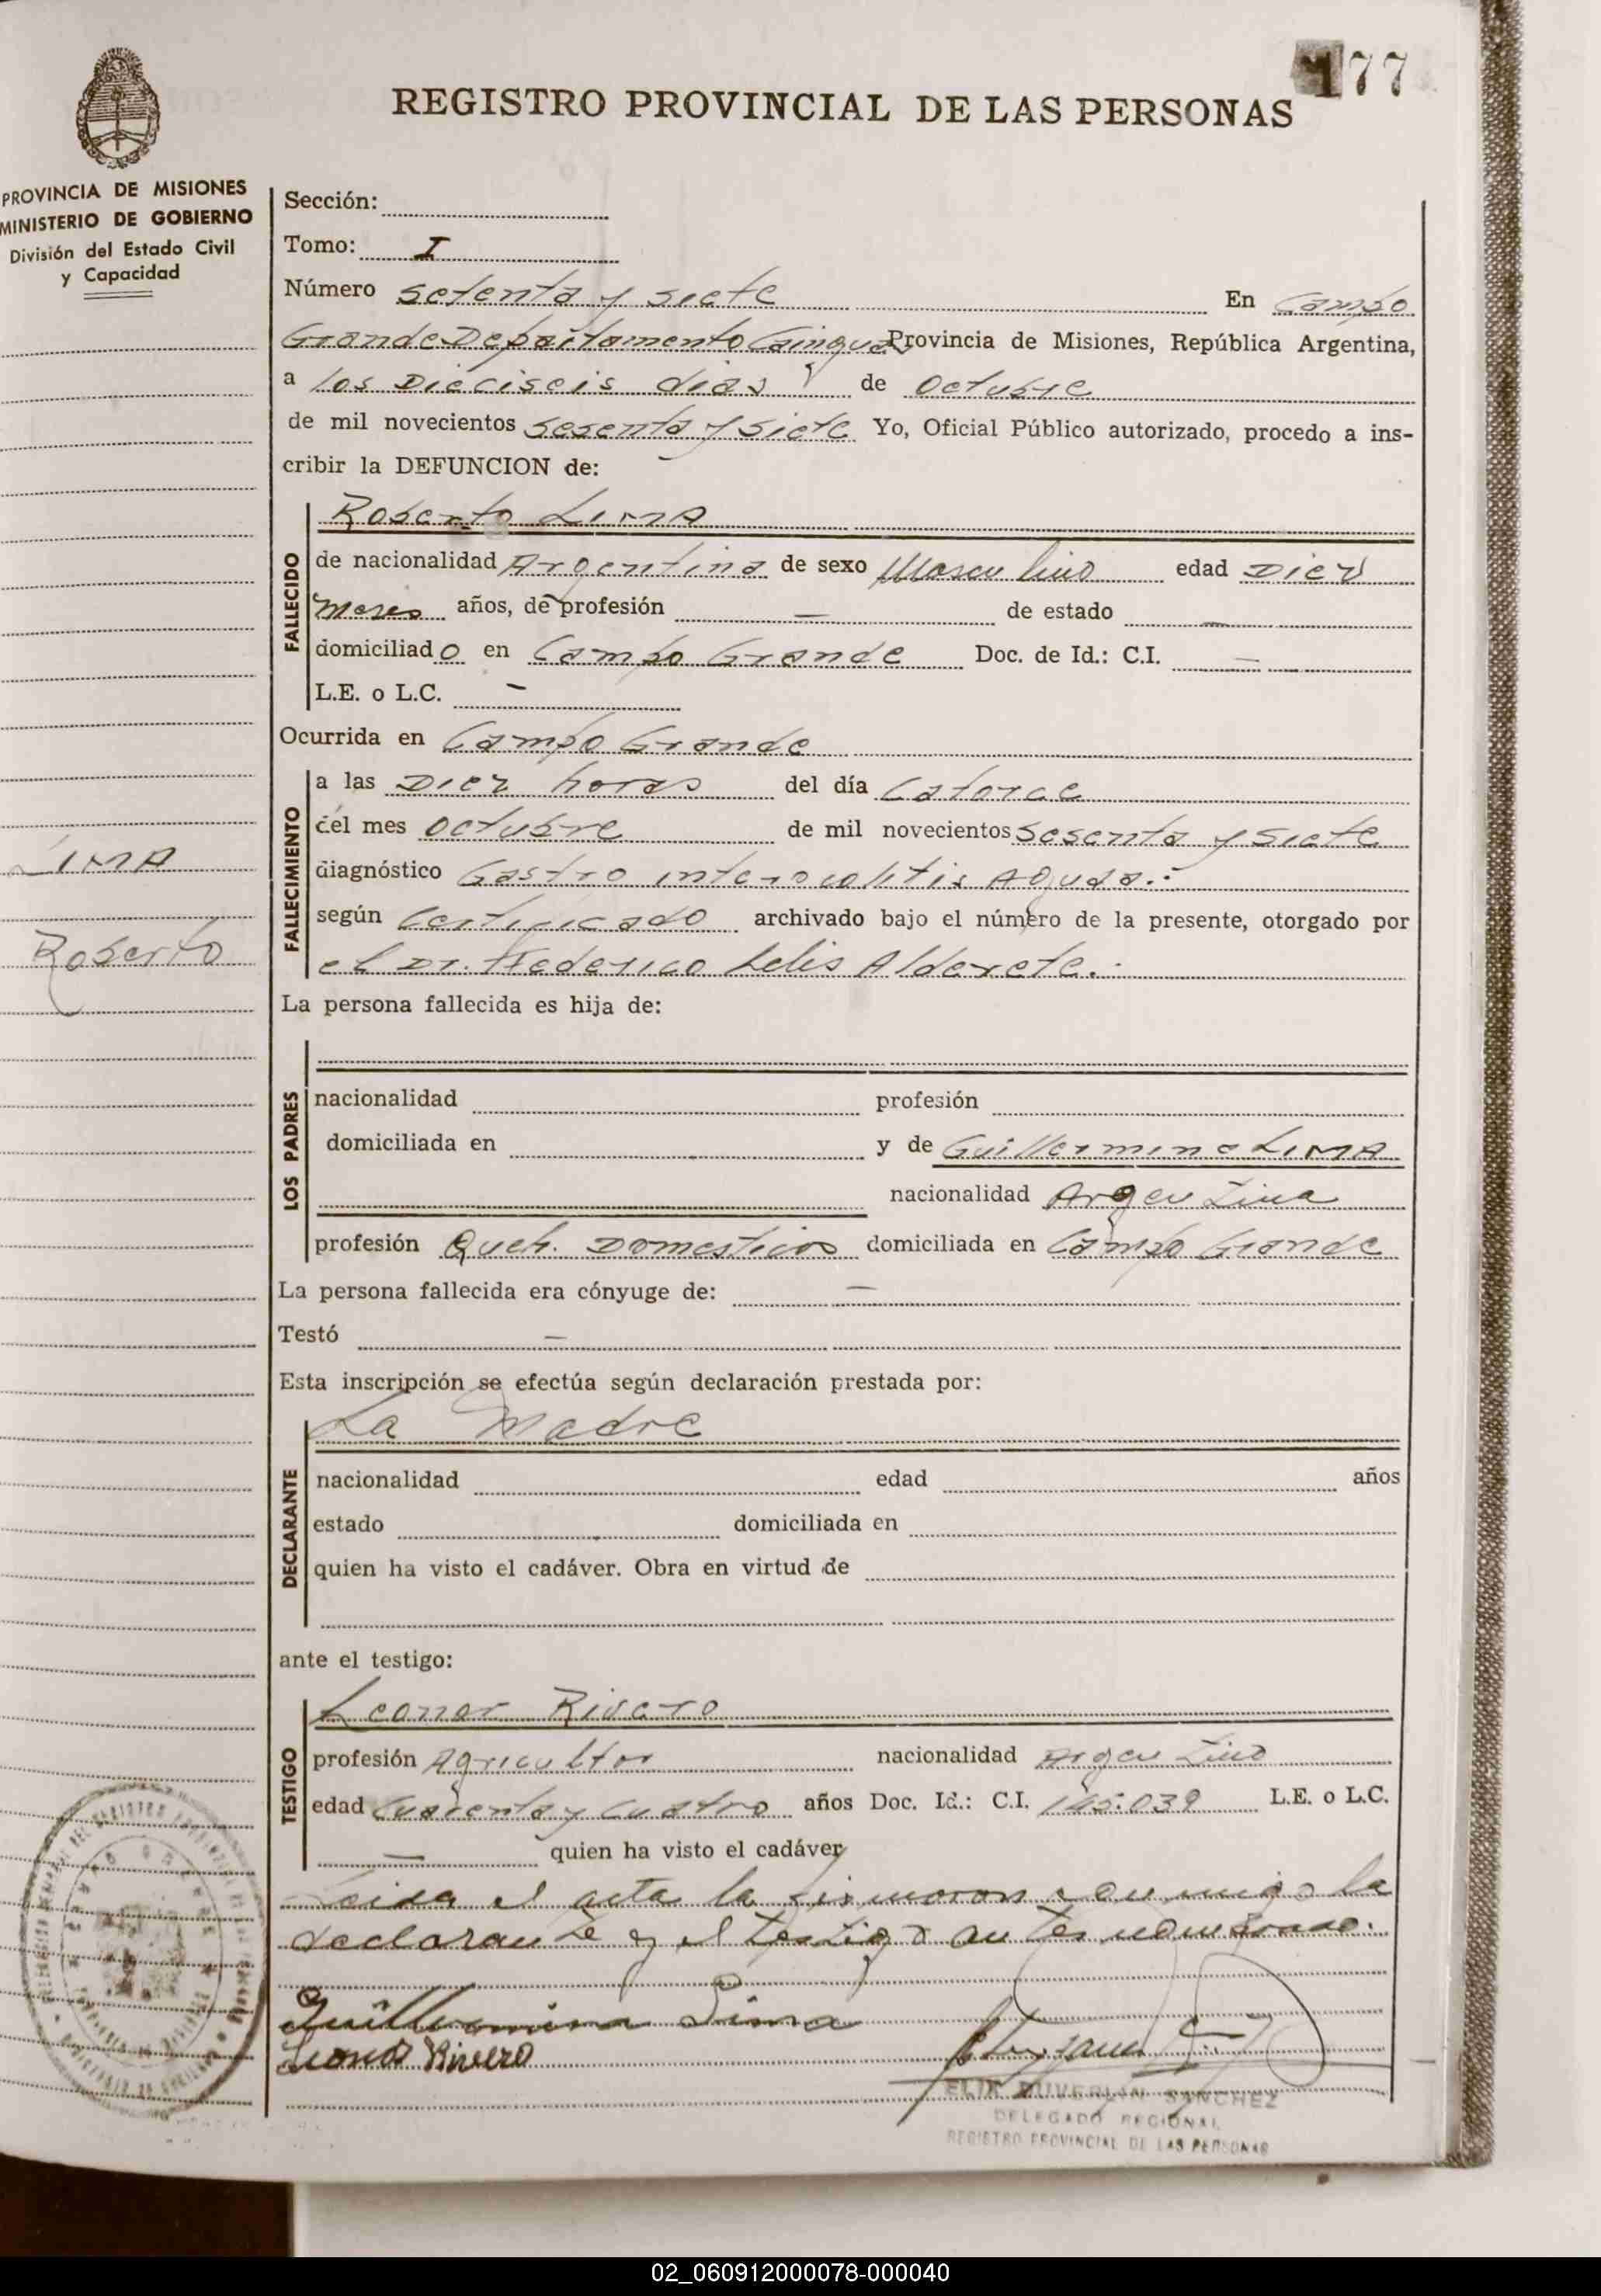 177
REGISTRO PROVINCIAL DE LAS PERSONAS
PROVINCIA DE MISIONES
MINISTERIO DE GOBIERNO
División del Estado Civil
y Capacidad
Sección:
Tomo: I
Número setenta y siete En Campo
Grande Departamento Cainguas Provincia de Misiones, República Argentina,
a los Dieciseis dias de Octubre
de mil novecientos sesenta y siete Yo, Oficial Público autorizado, procedo a ins-
cribir la DEFUNCION de:
FALLECIDO
Roberto LIMA
de nacionalidad Argentina de sexo Masculino edad Diez
meses años, de profesión — de estado —
domiciliado en Campo Grande Doc. de Id.: C.I. —
L.E. o L.C. —
Ocurrida en Campo Grande
FALLECIMIENTO
a las Diez horas del día Catorce
del mes octubre de mil novecientos sesenta y siete
diagnóstico Gastro interocolitis Aguda.-
según Certificado archivado bajo el número de la presente, otorgado por
el Dr. Federico Lelis Alderete.-
LIMA
Roberto
La persona fallecida es hija de:
LOS PADRES
nacionalidad profesión
domiciliada en y de Guillermina LIMA
nacionalidad Argentina
profesión Queh. Domesticos domiciliada en Campo Grande
La persona fallecida era cónyuge de: —
Testó —
Esta inscripción se efectúa según declaración prestada por:
DECLARANTE
La Madre
nacionalidad edad años
estado domiciliada en
quien ha visto el cadáver. Obra en virtud de
ante el testigo:
TESTIGO
Leonor Rivero
profesión Agricultor nacionalidad Argentino
edad Cuarenta y cuatro años Doc. Id.: C.I. 145.039 L.E. o L.C.
— quien ha visto el cadáver
Leida el acta la firmaron conmigo la
declarante y el testigo antes nombrado.-
Guillermina Lima
Rivero
SANCHEZ
DELEGADO REGIONAL
REGISTRO PROVINCIAL DE LAS PERSONAS
02_060912000078-000040